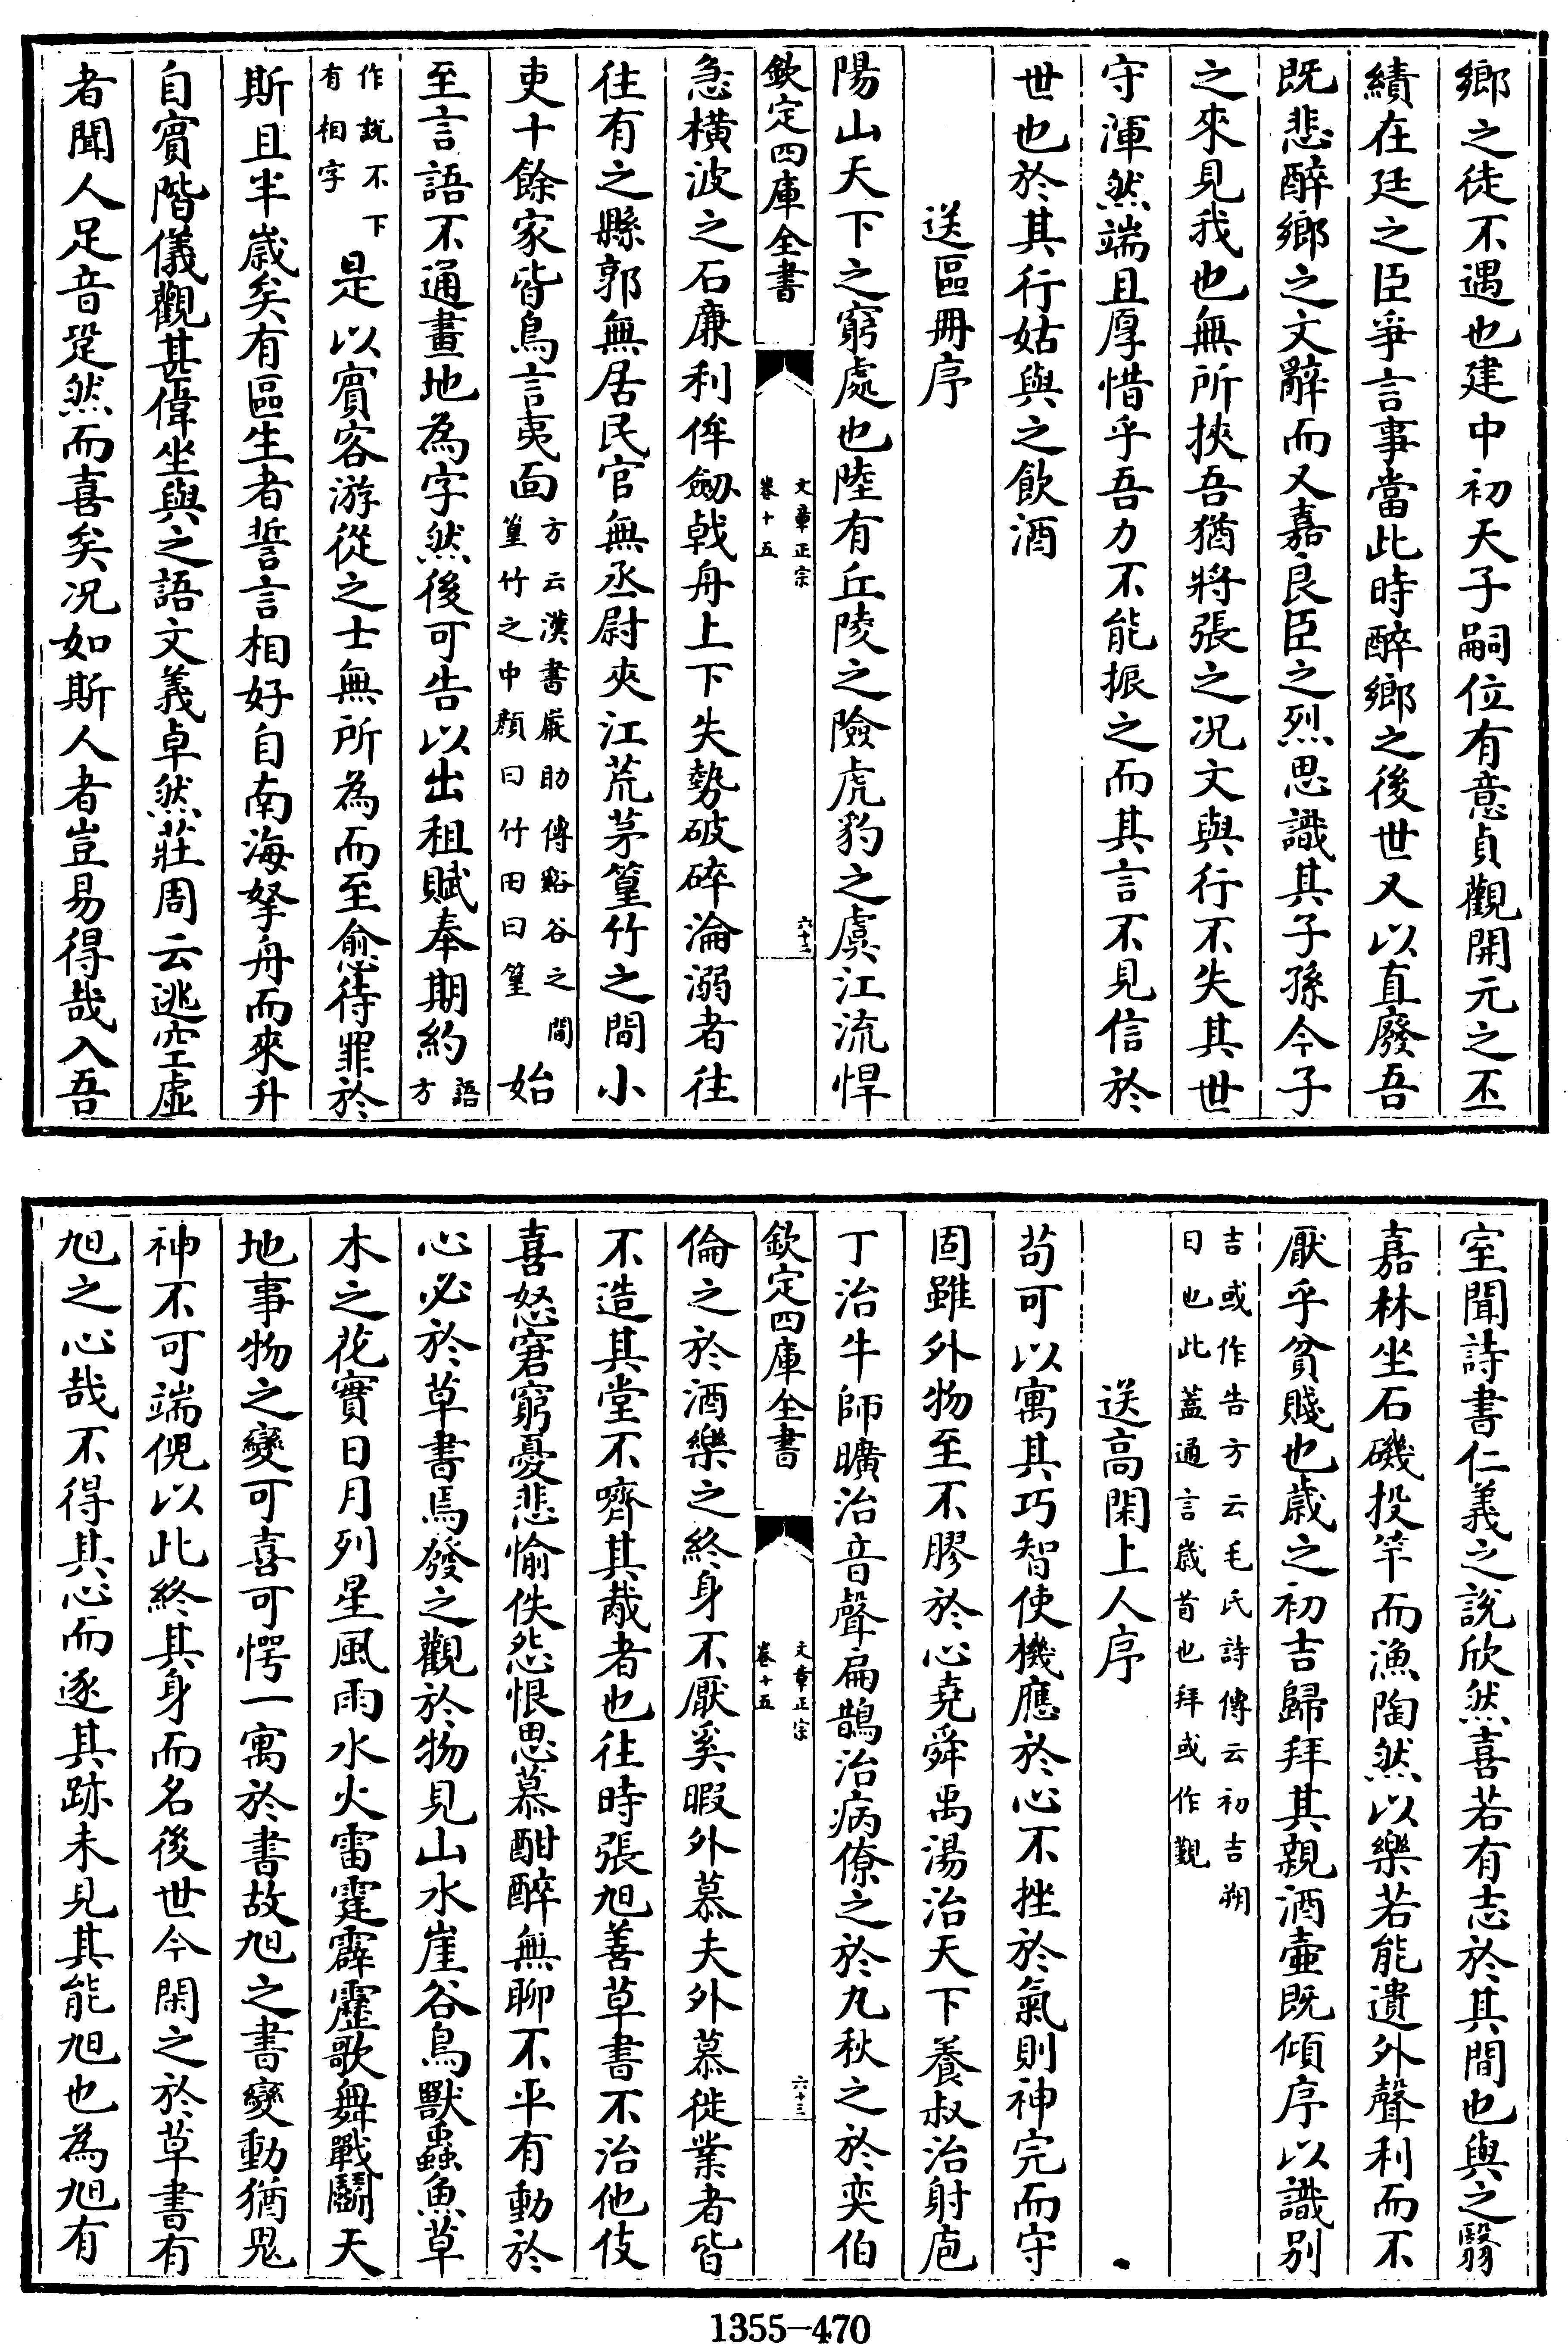 鄉之徒不遇也建中初天子嗣位有意貞觀開元之丕
績在廷之臣爭言事當此時醉鄉之後世又以直廢吾
既悲醉鄉之文辭而又嘉良臣之烈思識其子孫今子
之來見我也無所挾吾猶將張之况文與行不失其世
守渾然端且厚惜乎吾力不能振之而其言不見信於
世也於其行姑與之飲酒
送區冊序
陽山天下之窮處也陸有丘陵之險虎豹之虞江流悍
欽定四庫全書
文章正宗
卷十五
六十二
急橫波之石廉利侔劒戟舟上下失勢破碎淪溺者往
往有之縣郭無居民官無丞尉夾江荒茅篁竹之間小
吏十餘家皆鳥言夷面方云漢書嚴助傳谿谷之間篁竹之中顏曰竹田曰篁始
至言語不通畫地為字然後可告以出租賦奉期約語方
作說不下有相字是以賓客游從之士無所為而至愈待罪於
斯且半歲矣有區生者誓言相好自南海拏舟而來升
自賓階儀觀甚偉坐與之語文義卓然莊周云逃空虛
者聞人足音跫然而喜矣况如斯人者豈易得哉入吾
室聞詩書仁義之說欣然喜若有志於其間也與之翳
嘉林坐石磯投竿而漁陶然以樂若能遺外聲利而不
厭乎貧賤也歲之初吉歸拜其親酒壺既傾序以識别
吉或作告方云毛氏詩傳云初吉朔
日也此蓋通言歲首也拜或作覲
送高閑上人序
苟可以寓其巧智使機應於心不挫於氣則神完而守
固雖外物至不膠於心堯舜禹湯治天下養叔治射庖
丁治牛師曠治音聲扁鵲治病僚之於丸秋之於奕伯
欽定四庫全書
文章正宗
卷十五
六十三
倫之於酒樂之終身不厭奚暇外慕夫外慕徙業者皆
不造其堂不嚌其胾者也往時張旭善草書不治他伎
喜怒窘窮憂悲愉佚怨恨思慕酣醉無聊不平有動於
心必於草書焉發之觀於物見山水崖谷鳥獸蟲魚草
木之花實日月列星風雨水火雷霆霹靂歌舞戰鬭天
地事物之變可喜可愕一寓於書故旭之書變動猶鬼
神不可端倪以此終其身而名後世今閑之於草書有
旭之心哉不得其心而逐其跡未見其能旭也為旭有
1355-470